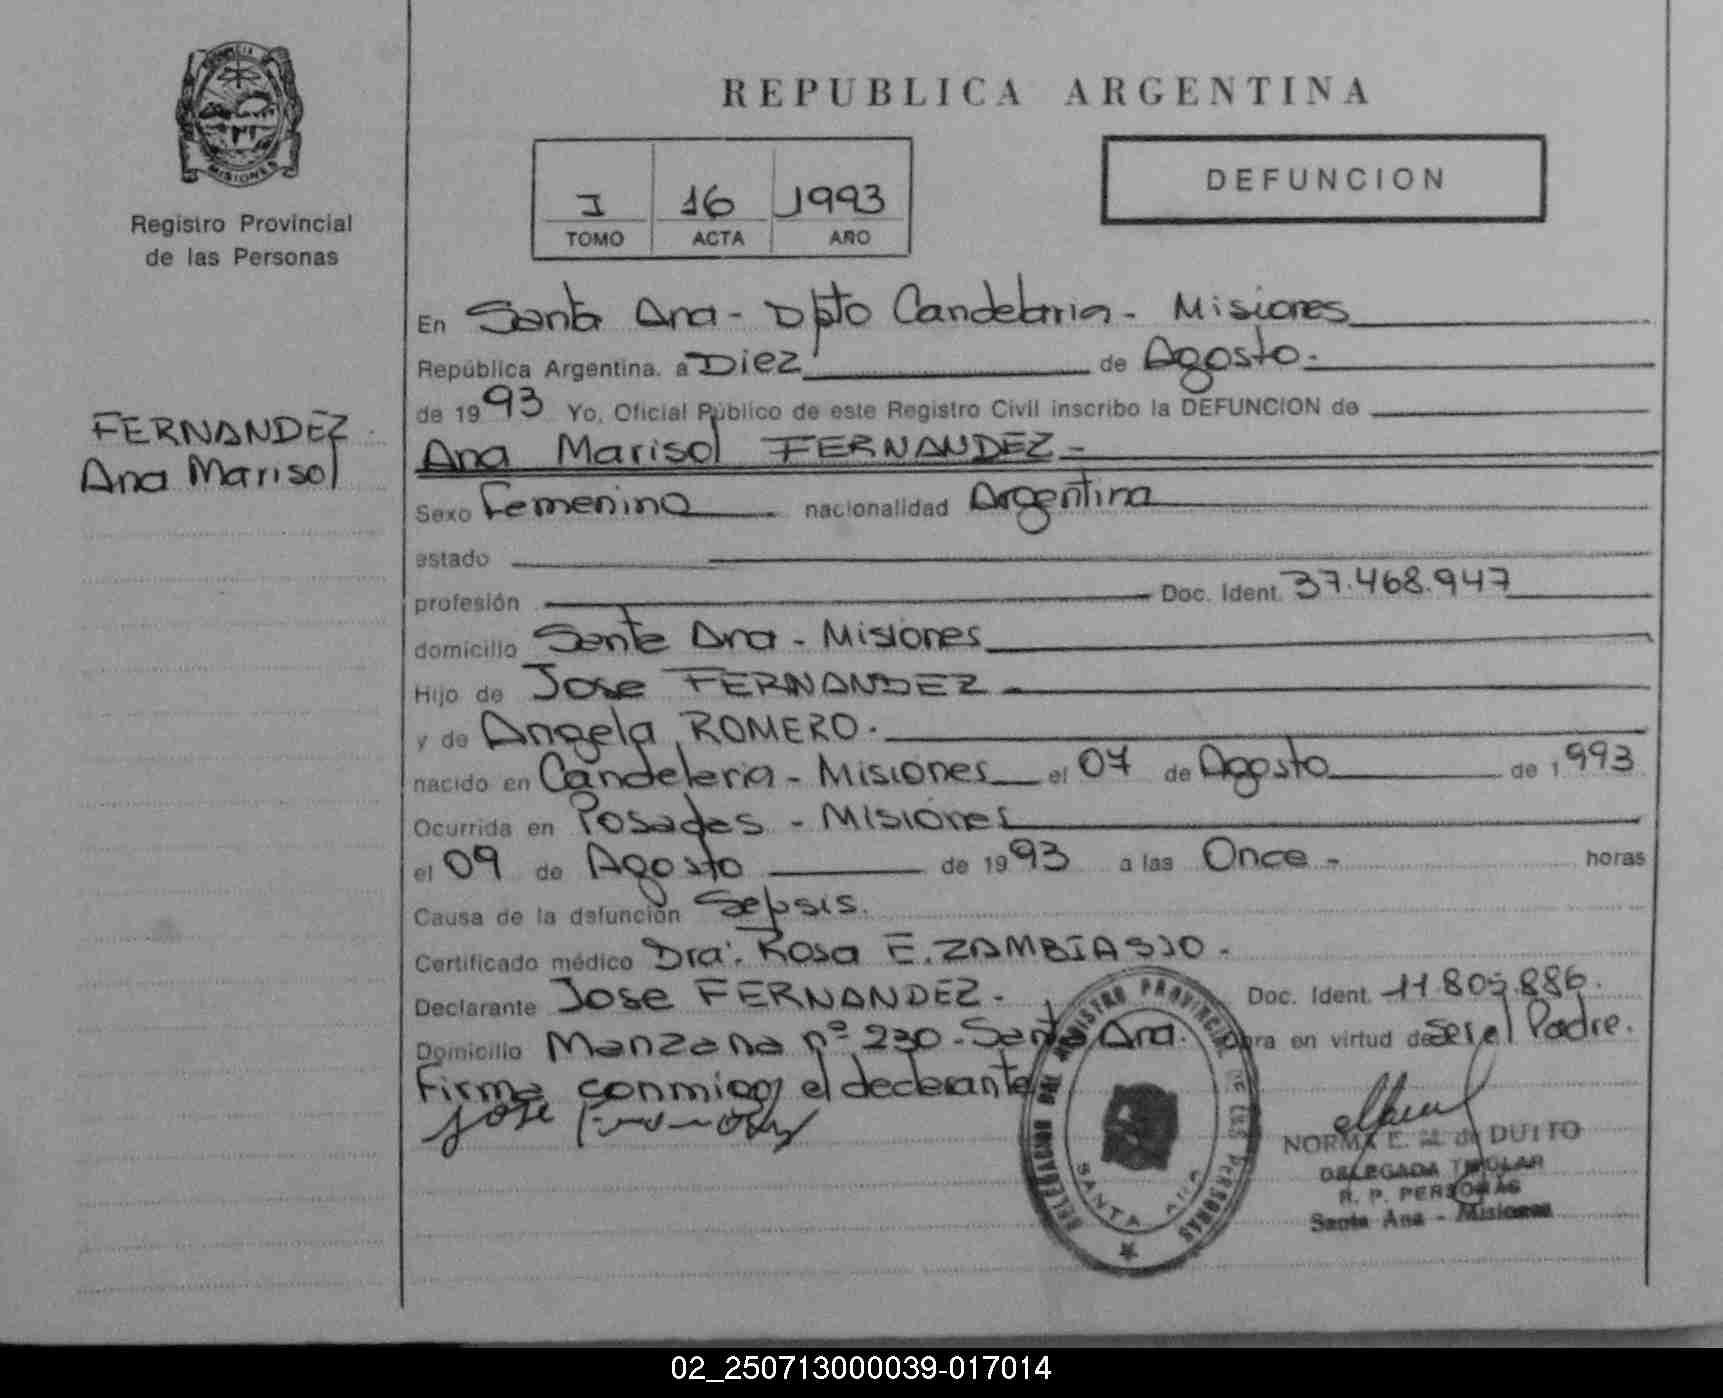 PROVINCIA DE
MISIONES
Registro Provincial
de las Personas
FERNANDEZ
Ana Marisol
REPUBLICA ARGENTINA
I 16 1993
TOMO ACTA AÑO
DEFUNCION
En Santa Ana - Dpto Candelaria - Misiones
República Argentina. a Diez de Agosto.
de 1993 Yo, Oficial Público de este Registro Civil inscribo la DEFUNCION de
Ana Marisol FERNANDEZ -
Sexo Femenino nacionalidad Argentina
estado
profesión Doc. Ident. 37.468.947
domicilio Santa Ana - Misiones
Hijo de Jose FERNANDEZ -
y de Angela ROMERO.
nacido en Candelaria - Misiones el 07 de Agosto de 1993
Ocurrida en Posadas - Misiones
el 09 de Agosto de 1993 a las Once - horas
Causa de la defunción Sepsis.
Certificado médico Dra. Rosa E. ZAMBIASIO -
Declarante Jose FERNANDEZ - Doc. Ident. 11.805.886.
Domicilio Manzana nº 230 - Santa Ana. Obra en virtud de Ser el Padre.
Firma conmigo el declarante
Jose Fernandez
DELEGACION DEL REGISTRO PROVINCIAL DE LAS PERSONAS
SANTA ANA
NORMA E. M. de DUTTO
DELEGADA TITULAR
R. P. PERSONAS
Santa Ana - Misiones
02_250713000039-017014